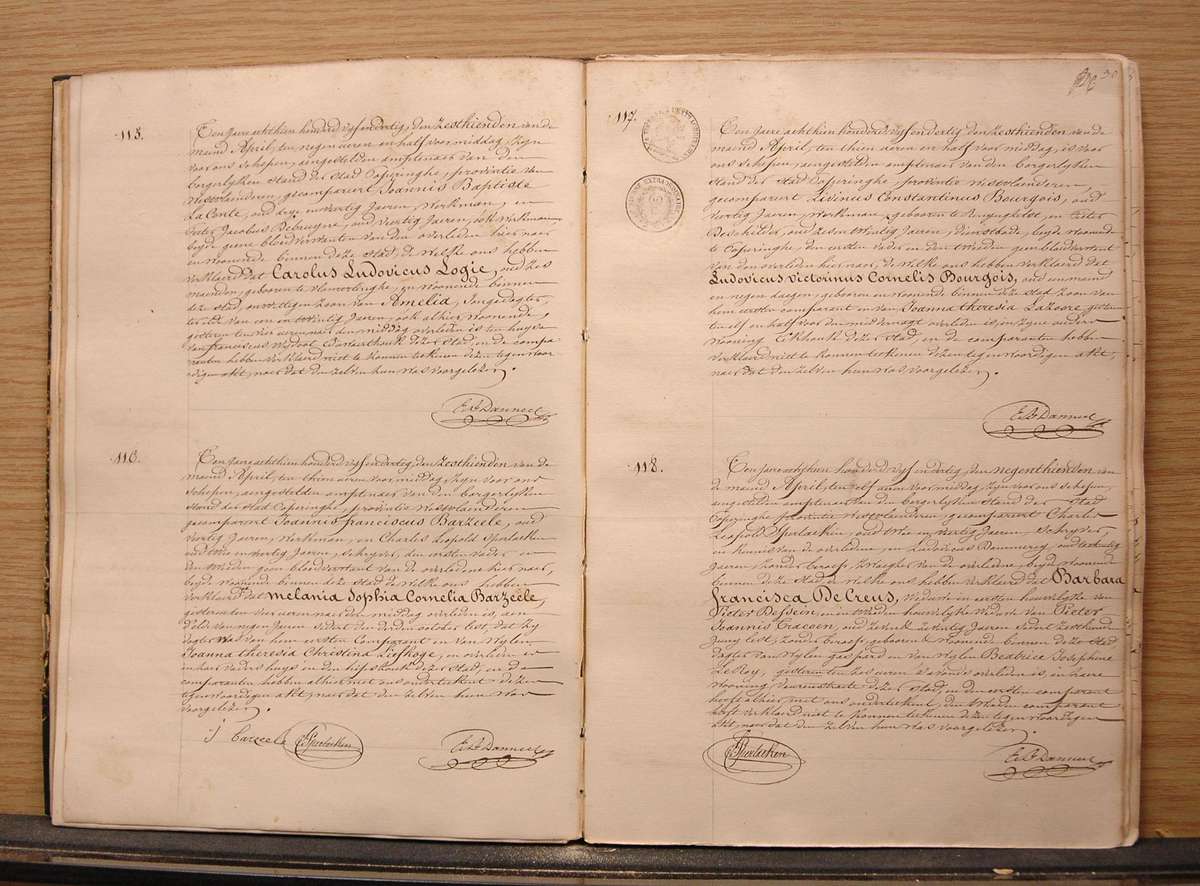 115.
Ten Jaere achthien honderd vyf en dertig, den Zesthienden van de
maend April, ten negen ueren en half voormiddag, Zyn
voor ons schepen, aengestelden amptenaer van den
borgerlyken stand der stad Poperinghe, provintie van
Westvlaenderen, gecompareert Joannis Baptiste
LaConte, oud dry en veertig Jaeren, Werkman, en
Pieter Jacobus Debruyne, oud veertig Jaeren, ook Werkman,
beyde geene bloedverwanten van den overleden hier naer
en woonende binnen deze stad, de welke ons hebben
verklaerd dat Carolus Ludovicus Logie, oud Zes
maenden, geboren te Vlamertinghe, en woonende binnen
deze stad, onwettigen zoon van Amelia,
oud van een en twintig Jaeren, ook alhier woonende,
gisteren ten vier ueren naer den middag overleden is ten huyze
van franciscus dezer stad, en de compa-
ranten hebben verklaerd niet te konnen teekenen dezen tegenwoor-
digen akt, naer dat den zelven hun was voorgelezen.
E. D. Danneel
116.
Ten Jaere achthien honderd vyf en dertig, den Zesthienden van de
maend April, ten thien ueren voor middag, zyn voor ons
schepen, aengestelden amptenaer van den borgerlyken
stand der stad Poperinghe, provintie Westvlaenderen
gecompareert Joannis franciscus Barzeele, oud
veertig Jaeren, Werkman, en Charles Leopold Sperlaeken
oud twee en veertig Jaeren, schryver, den eersten vader en
den tweeden geen bloedverwant van de overledene hier naer,
beyde woonende binnen deze stad de welke ons hebben
verklaerd dat melania Sophia Cornelia Barzeele,
gisteren ten vier ueren naer den middag overleden is, oud
dat zy
dogter was van hem eersten Comparant en van wylen
Joanna theresia Christina Liefhoge, en overleden is
in haer vaders huys in den dezer stad, en de
comparanten hebben alhier met ons onderteekent dezen
tegenwoordigen akt naer dat den zelven hun was
voorgelezen.
J Barzeele Sperlaeken E. D. Danneel
117.
Ten Jaere achthien honderd vyf en dertig, den Zesthienden van de
maend April, ten thien ueren en half voor middag, is voor
ons schepen, aengestelden amptenaer van den borgerlyken
stand der stad Poperinghe, provintie Westvlaenderen,
gecompareert Livinus Constantinus Bourgois, oud
veertig Jaeren, Werkman, geboren te Reninghelst, en Pieter
oud zes en twintig Jaeren, dienstbode, beyde woonende
te Poperinghe, den eersten vader en den tweeden geen bloedverwant
van den overleden hier naer, de welke ons hebben verklaerd dat
Ludovicus victorinus Cornelis Bourgois, oud een maend
en negen daegen, geboren en woonende binnen deze stad Zoon van
hem eersten comparant en van Joanna theresia Lazoore, gisteren
ten elf en half voor den middernagt overleden is, in zyne ouders
wooning Ekhoek dezer stad, en de comparanten hebben
verklaerd niet te konnen teekenen dezen tegenwoordigen akt,
naer dat den zelven hun was voorgelezen.
E. D. Danneel
118.
Ten Jaere achthien honderd vyf en dertig, den negenthienden van
de maend April, ten elf ueren voor middag, Zyn voor ons schepen,
aengestelden amptenaer van den borgerlyken stand der stad
Poperinghe, provintie Westvlaenderen gecompareert Charles
Leopold Sperlaeken, oud twee en veertig Jaeren, schryver,
en kennis van de overledene, en Ludovicus oud
Jaeren, zonder beroep, zwaeger van de overledene, beyde woonende
binnen deze stad de welke ons hebben verklaerd dat Barbara
francisca DeCreus, Weduwe in eersten houwelyke van
Pieter Dessein, en in tweeden houwelyke Weduwe van Pieter
Joannis Craesen, oud
Juny lest, zonder beroep, geboren en woonende binnen deze stad,
dogter van wylen gaspard en van wylen Beatrice Josephine
LeRoy, gisteren ten zes ueren s'avonds overleden is, in haere
wooning veurnestraete dezer stad, en den eersten comparant
heeft alhier met ons onderteekent, den tweeden comparant
heeft verklaerd niet te konnen teekenen dezen tegenwoordigen
akt, naer dat den zelven hun was voorgelezen.
Sperlaeken E. D. Danneel